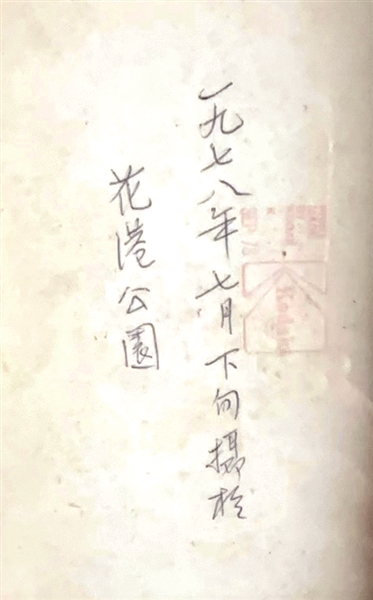 一九七八年七月下旬摄於
花港公園
Kodak